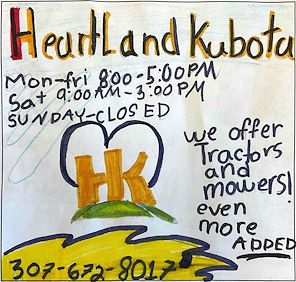 HeartLand Kubota
Mon-fri 8:00-5:00PM
Sat 9:00AM-3:00PM
SUNDAY-CLOSED
HK
we offer
Tractors
and
mowers!
even
more
ADDED
307-672-8017